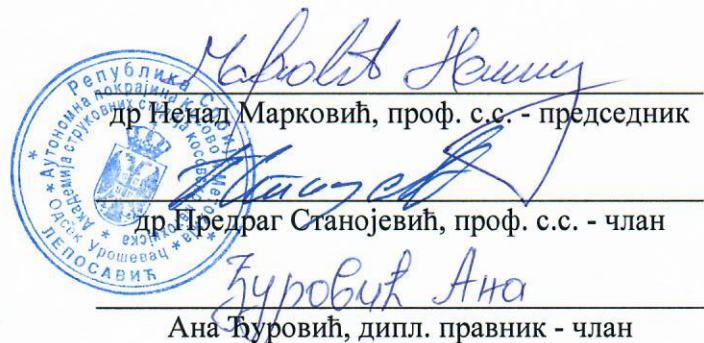 Марковић Ненад
др Ненад Марковић, проф. с.с. - председник
др Предраг Станојевић, проф. с.с. - члан
Ђуровић Ана
Ана Ђуровић, дипл. правник - члан
Република Србија
*Аутономна покрајина Косово и Метохија*
Академија струковних студија косовско метохијска
*Одсек Урошевац*
ЛЕПОСАВИЋ